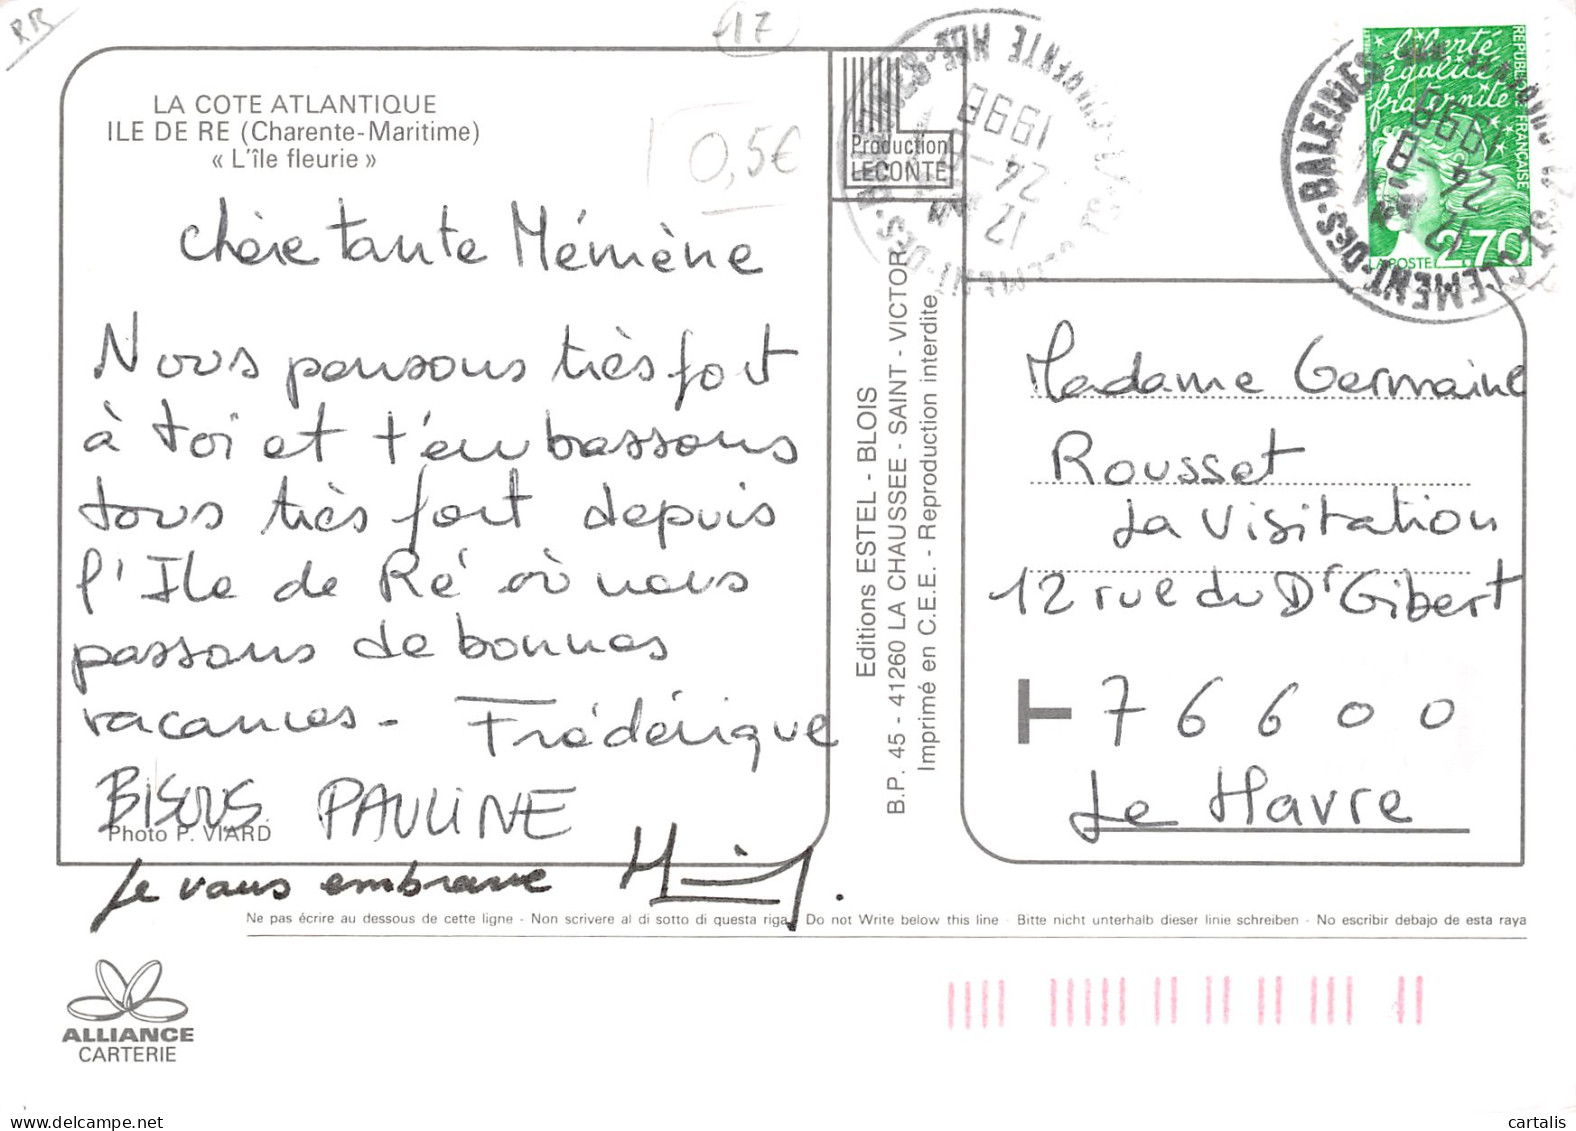 RR
17
LA COTE ATLANTIQUE
ILE DE RE (Charente-Maritime)
« L'île fleurie »
0,5€
Production
LECONTE
chère tante Mémène
Nous pensons très fort
à toi et t'embrassons
tous très fort depuis
l'Ile de Ré où nous
passons de bonnes
vacances - Frédérique
BISOUS PAULINE
Photo P. VIARD
Je vous embrasse
Ne pas écrire au dessous de cette ligne - Non scrivere al di sotto di questa riga - Do not Write below this line - Bitte nicht unterhalb dieser linie schreiben - No escribir debajo de esta raya
ALLIANCE
CARTERIE
Editions ESTEL - BLOIS
B.P. 45 - 41260 LA CHAUSSEE - SAINT - VICTOR
Imprimé en C.E.E. - Reproduction interdite
12
24-8
1998
liberté
égalité
fraternité
REPUBLIQUE FRANÇAISE
LA POSTE 2,70
ST CLEMENT-DES-BALEINES
12
24-8
1998
Madame Germaine
Rousset
La Visitation
12 rue du Dr Gibert
76600
Le Havre
cartalis